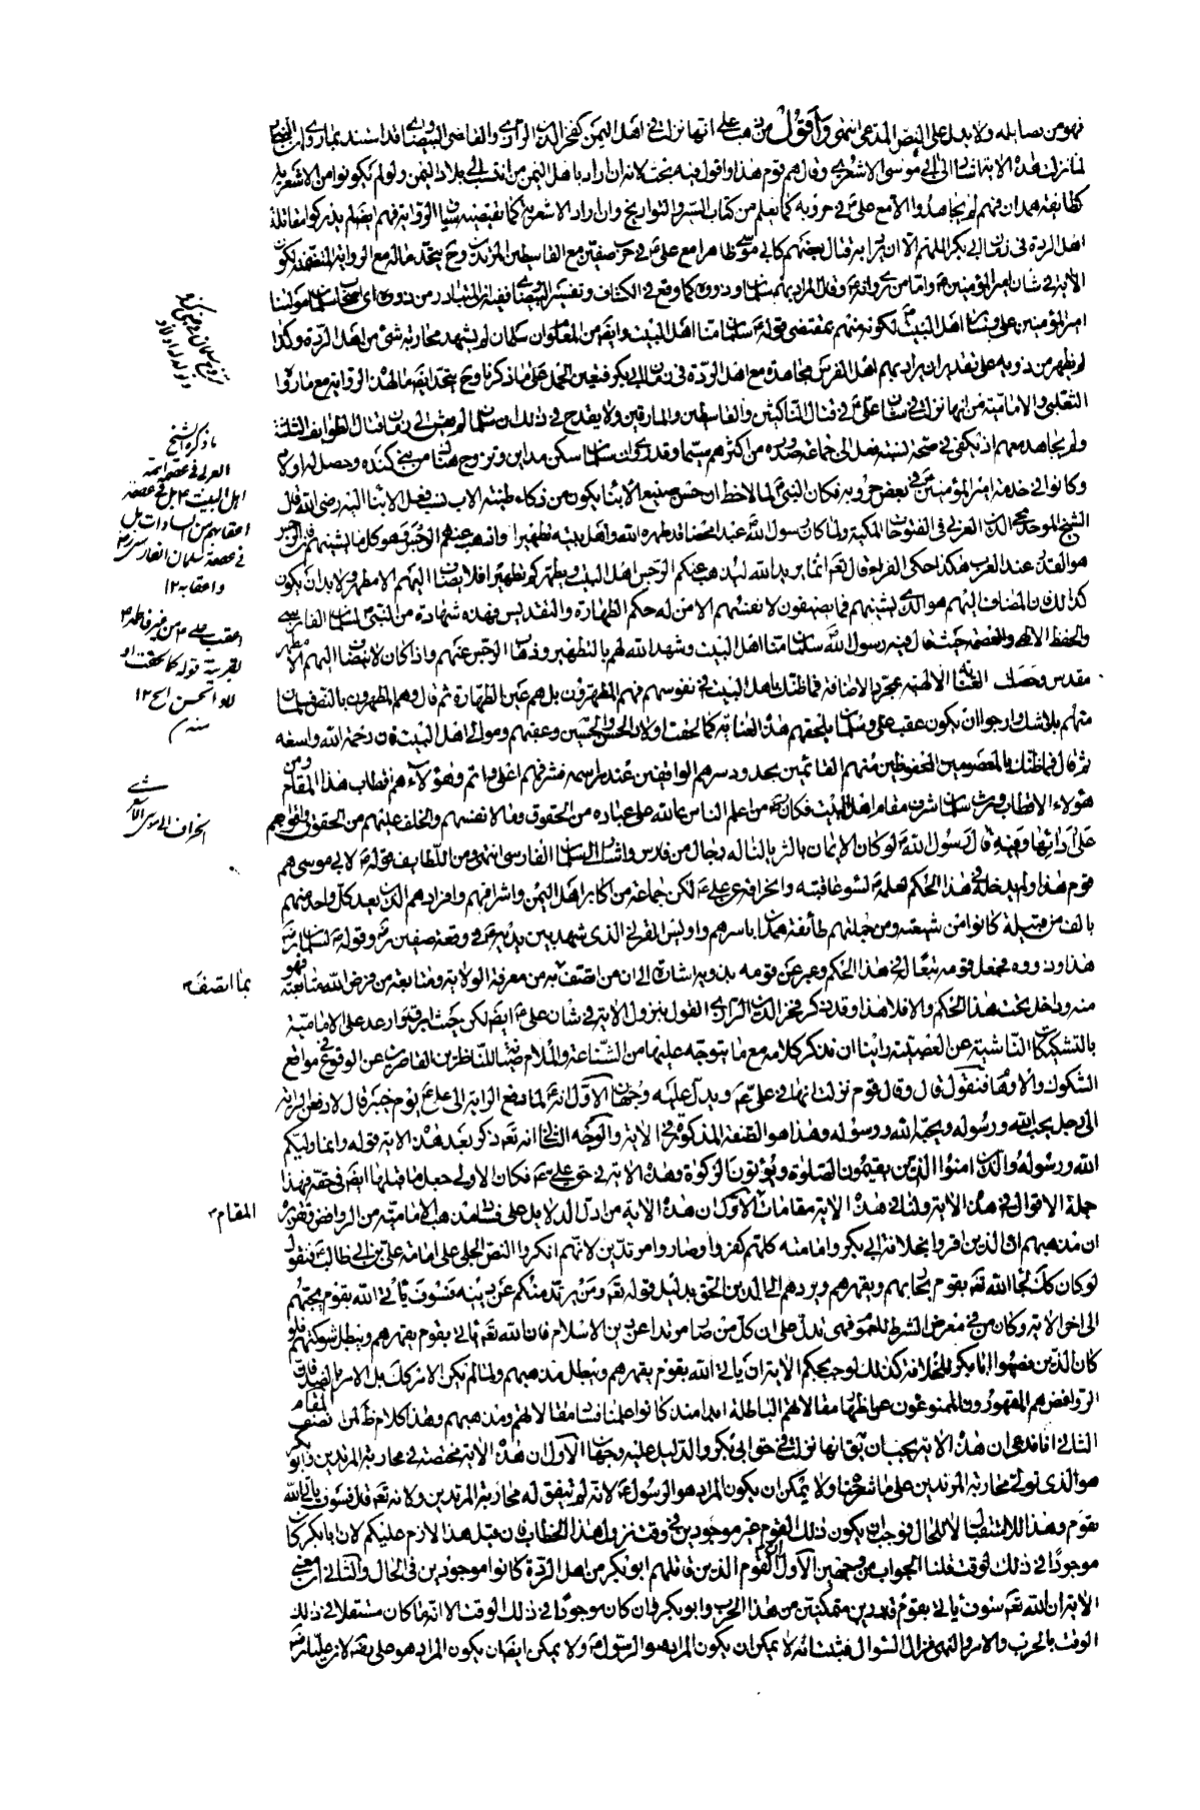 فهو من صابله ولا يدل على النص المدعى انتهى وأقول من ذهب على انها نزلت في اهل اليمن كفخر الدين الرازي والقاضي البيضاوي قد استند بما روى
لما نزلت هذه الاية اشار الى ابي موسى الاشعري وقال هم قوم هذا واقول فيه بحث لانه ان اراد باهل اليمن من انتسب الى بلاد اليمن ولو لم يكونوا من الاشعريه
كطائفة همدان فهم لم يجاهدوا الا مع علي ع في حروبه كما يعلم من كتاب السير والتواريخ وان اراد الاشعرية كما يقتضيه سياق الرواية فهم ايضا لم يذكروا مقاتلة
اهل الردة في زمان ابي بكر اللهم الا ان يراد به قتال بعضهم كابي موسى ظاهرا مع علي ع في حرب صفين مع القاسطين المرتدين وح يتحد ماله مع الرواية المتضمنة لكون
الاية في شان امير المؤمنين ع واما من روى انه ع قال المراد بهم سلمان وذووه كما وقع في الكشاف وتفسير البيضاوي ففيه ان المتبادر من ذوى اى اصحاب سلمان مولينا
امير المؤمنين علي وساير اهل البيت لكونه منهم بمقتضى قوله ع سلمان منا اهل البيت وايضا من المعلوم ان سلمان لم يشهد محاربة شئ من اهل الردة وكذا
لم يظهر من ذويه على تقدير ان يراد بهم اهل الفرس مجاهدة مع اهل الردة في زمان ابي بكر فتعين الحمل على ما ذكرنا وح يتحد ايضا مآل هذه الرواية مع ما رواه
الثعلبي والامامية من انها نزلت في شان علي ع في قتال الناكثين والقاسطين والمارقين ولا يقدح في ذلك ان سلمان لم يعش الى زمان قتال الطوايف الثلثة
ولم يجاهد معهم اذ يكفي في صحة نسبة فعل الى جماعة صدوره من اكثرهم سيما وقد روى ان سلمان سكن مداين وتزوج هناك من بني كنده وحصل له اولاد
وكانوا في خدمة امير المؤمنين ع في بعض حروبه فكان النبي ع لما لاحظ ان حسن صنيع الابناء يكون من ذكاء طينة الاب نسب فعل الابناء اليه رضي الله قال
الشيخ الموحد محي الدين العربي في الفتوحات المكية ولما كان رسول الله ع عبدا محضا قد طهره الله واهل بيته تطهيرا واذهب عنهم الرجس وهو كل ما يشينهم فان الرجس
هو القذر عند العرب هكذا حكى الفراء قال تعالى انما يريد الله ليذهب عنكم الرجس اهل البيت ويطهركم تطهيرا فلا يضاف اليهم الا مطهر ولا بد ان يكون
كذلك فان المضاف اليهم هو الذي يشبههم فما يضيفون لانفسهم الا من له حكم الطهارة والتقديس فهذه شهادة من النبي ع لسلمان الفارسي
والحفظ الالهي والعصمة حيث قال فيه رسول الله سلمان منا اهل البيت وشهد الله لهم بالتطهير وذهاب الرجس عنهم واذا كان لا يضاف اليهم الا مطهر
مقدس وحصلت له العناية الالهية بمجرد الاضافة فما ظنك باهل البيت في نفوسهم فهم المطهرون بل هم عين الطهارة ثم قال وهم المطهرون بالنص فسلمان
منهم بلا شك وارجوا ان يكون عقب علي وسلمان يلحقهم هذه العناية كما لحقت اولاد الحسن والحسين وعقبهم وموالي اهل البيت فان رحمة الله واسعه
ثم قال فما ظنك بالمعصومين المحفوظين منهم القائمين بحدود سيدهم الواقفين عند مراسمه فشرفهم اعلى واتم وهؤلاء هم اقطاب هذا المقام ومن
هؤلاء الاقطاب ورث سلمان شرف مقام اهل البيت فكان رض من اعلم الناس بما لله على عباده من الحقوق وما لانفسهم والخلق عليهم من الحقوق واقواهم
على ادائها وفيه قال رسول الله ع لو كان الايمان بالثريا لناله رجال من فارس واشار الى سلمان الفارسي انتهى ومن اللطايف قوله ع لابي موسى هم
قوم هذا ولم يدخله في هذا الحكم لعلمه ع لسوء عاقبته وانحرافه عن علي ع لكن جماعة من اكابر اهل اليمن واشرافهم وافرادهم الذين يعد كل واحد منهم
بالف من قبيلة كانوا من شيعته ومن جملتهم طائفة همدان باسرهم واويس القرني الذي شهد بين يديه ع في وقعة صفين رض وقوله ع لسلمان رض
هذا وذووه فجعل قومه تبعا له في هذا الحكم وعبر عن قومه بذويه اشارة الى ان من اتصف به من معرفة الولاية ومتابعة من فرض الله متابعته فهو
منه وداخل تحت هذا الحكم والا فلا هذا وقد ذكر فخر الدين الرازي القول بنزول الاية في شان علي ع ايضا لكن حيث ابرق وارعد على الامامية
بالتشكيكات الناشية عن العصبية راينا ان نذكر كلامه مع ما يتوجه عليها من الشناعة والملام صيانة للناظرين القاصرين عن الوقوع في مواقع
الشكوك والاوهام فنقول قال وقال قوم نزلت انها في علي ع ويدل عليه وجهان الاول انه ع لما دفع الراية الى علي ع يوم خيبر قال لادفعن الراية
الى رجل يحب الله ورسوله ويحبه الله ورسوله وهذا هو الصفة المذكورة في الاية والوجه الثاني انه تعالى ذكر بعد هذه الاية قوله وانما وليكم
الله ورسوله والذين امنوا الذين يقيمون الصلوة ويؤتون الزكوة وهذه الاية في حق علي ع فكان الاولى جعل ما قبلها ايضا في حقه فهذا
جملة الاقوال في هذه الاية ولنا في هذه الاية مقامات الاول ان هذه الاية من ادل الدلايل على فساد مذهب الامامية من الروافض وتقرير
ان مذهبهم ان الذين اقروا بخلافة ابي بكر وامامته كلهم كفروا وصاروا مرتدين لانهم انكروا النص الجلي على امامة علي بن ابي طالب ع فنقول
لو كان كذلك لجاء الله تعالى بقوم يحاربهم ويقهرهم ويردهم الى الدين الحق بدليل قوله تعالى ومن يرتد منكم عن دينه فسوف يأتي الله بقوم يحبهم
الى اخر الاية وكان من في معرض الشرط للعموم فهي تدل على ان كل من صار مرتدا عن دين الاسلام فان الله تعالى ياتي بقوم يقهرهم ويبطل شوكتهم فلو
كان الذين نصبوا ابا بكر للخلافة كذلك لوجب بحكم الاية ان ياتي الله بقوم يقهرهم ويبطل مذهبهم ولما لم يكن الامر كذلك بل الامر بالضد فان
الروافض هم المقهورون الممنوعون عن اظهار مقالاتهم الباطلة ابدا منذ كانوا علمنا فساد مقالاتهم ومذهبهم وهذا كلام ظاهر لمن انصف المقام
الثاني انا ندعي ان هذه الاية يجب ان يقال انها نزلت في حق ابي بكر والدليل عليه وجهان الاول ان هذه الاية مختصة في محاربة المرتدين وابو بكر
هو الذي تولى محاربة المرتدين على ما شرحنا ولا يمكن ان يكون المراد هو الرسول ع لانه لم يتفق له محاربة المرتدين ولانه تعالى قال فسوف ياتي الله
بقوم وهذا للاستقبال لا للحال فوجب ان يكون ذلك القوم غير موجودين في وقت نزول هذا الخطاب فان قيل هذا لازم عليكم لان ابا بكر كان
موجودا في ذلك الوقت قلنا الجواب من وجهين الاول ان القوم الذين قاتلهم ابو بكر من اهل الردة كانوا موجودين في الحال والثاني ان معنى
الاية ان الله تعالى سوف ياتي بقوم قادرين متمكنين من هذا الحرب وابو بكر وان كان موجودا في ذلك الوقت الا انه ما كان مستقلا في ذلك
الوقت بالحرب والامر والنهي فزال السؤال فثبت انه لا يمكن ان يكون المراد هو الرسول ع ولا يمكن ايضا ان يكون المراد هو علي ع لان عليا ع
ما ذكره الشيخ
العربي في عصمة ائمة
اهل البيت ع بل في عصمة
اعقابهم من السادات بل
في عصمة سلمان الفارسي رض
واعقابه ١٢
اى عقب علي ع من غير فاطمة ع
بقرينة قوله كما لحقت
اولاد الحسن الخ ١٢
منه
انحراف ابي موسى الاشعري
بما اتصف
المقام